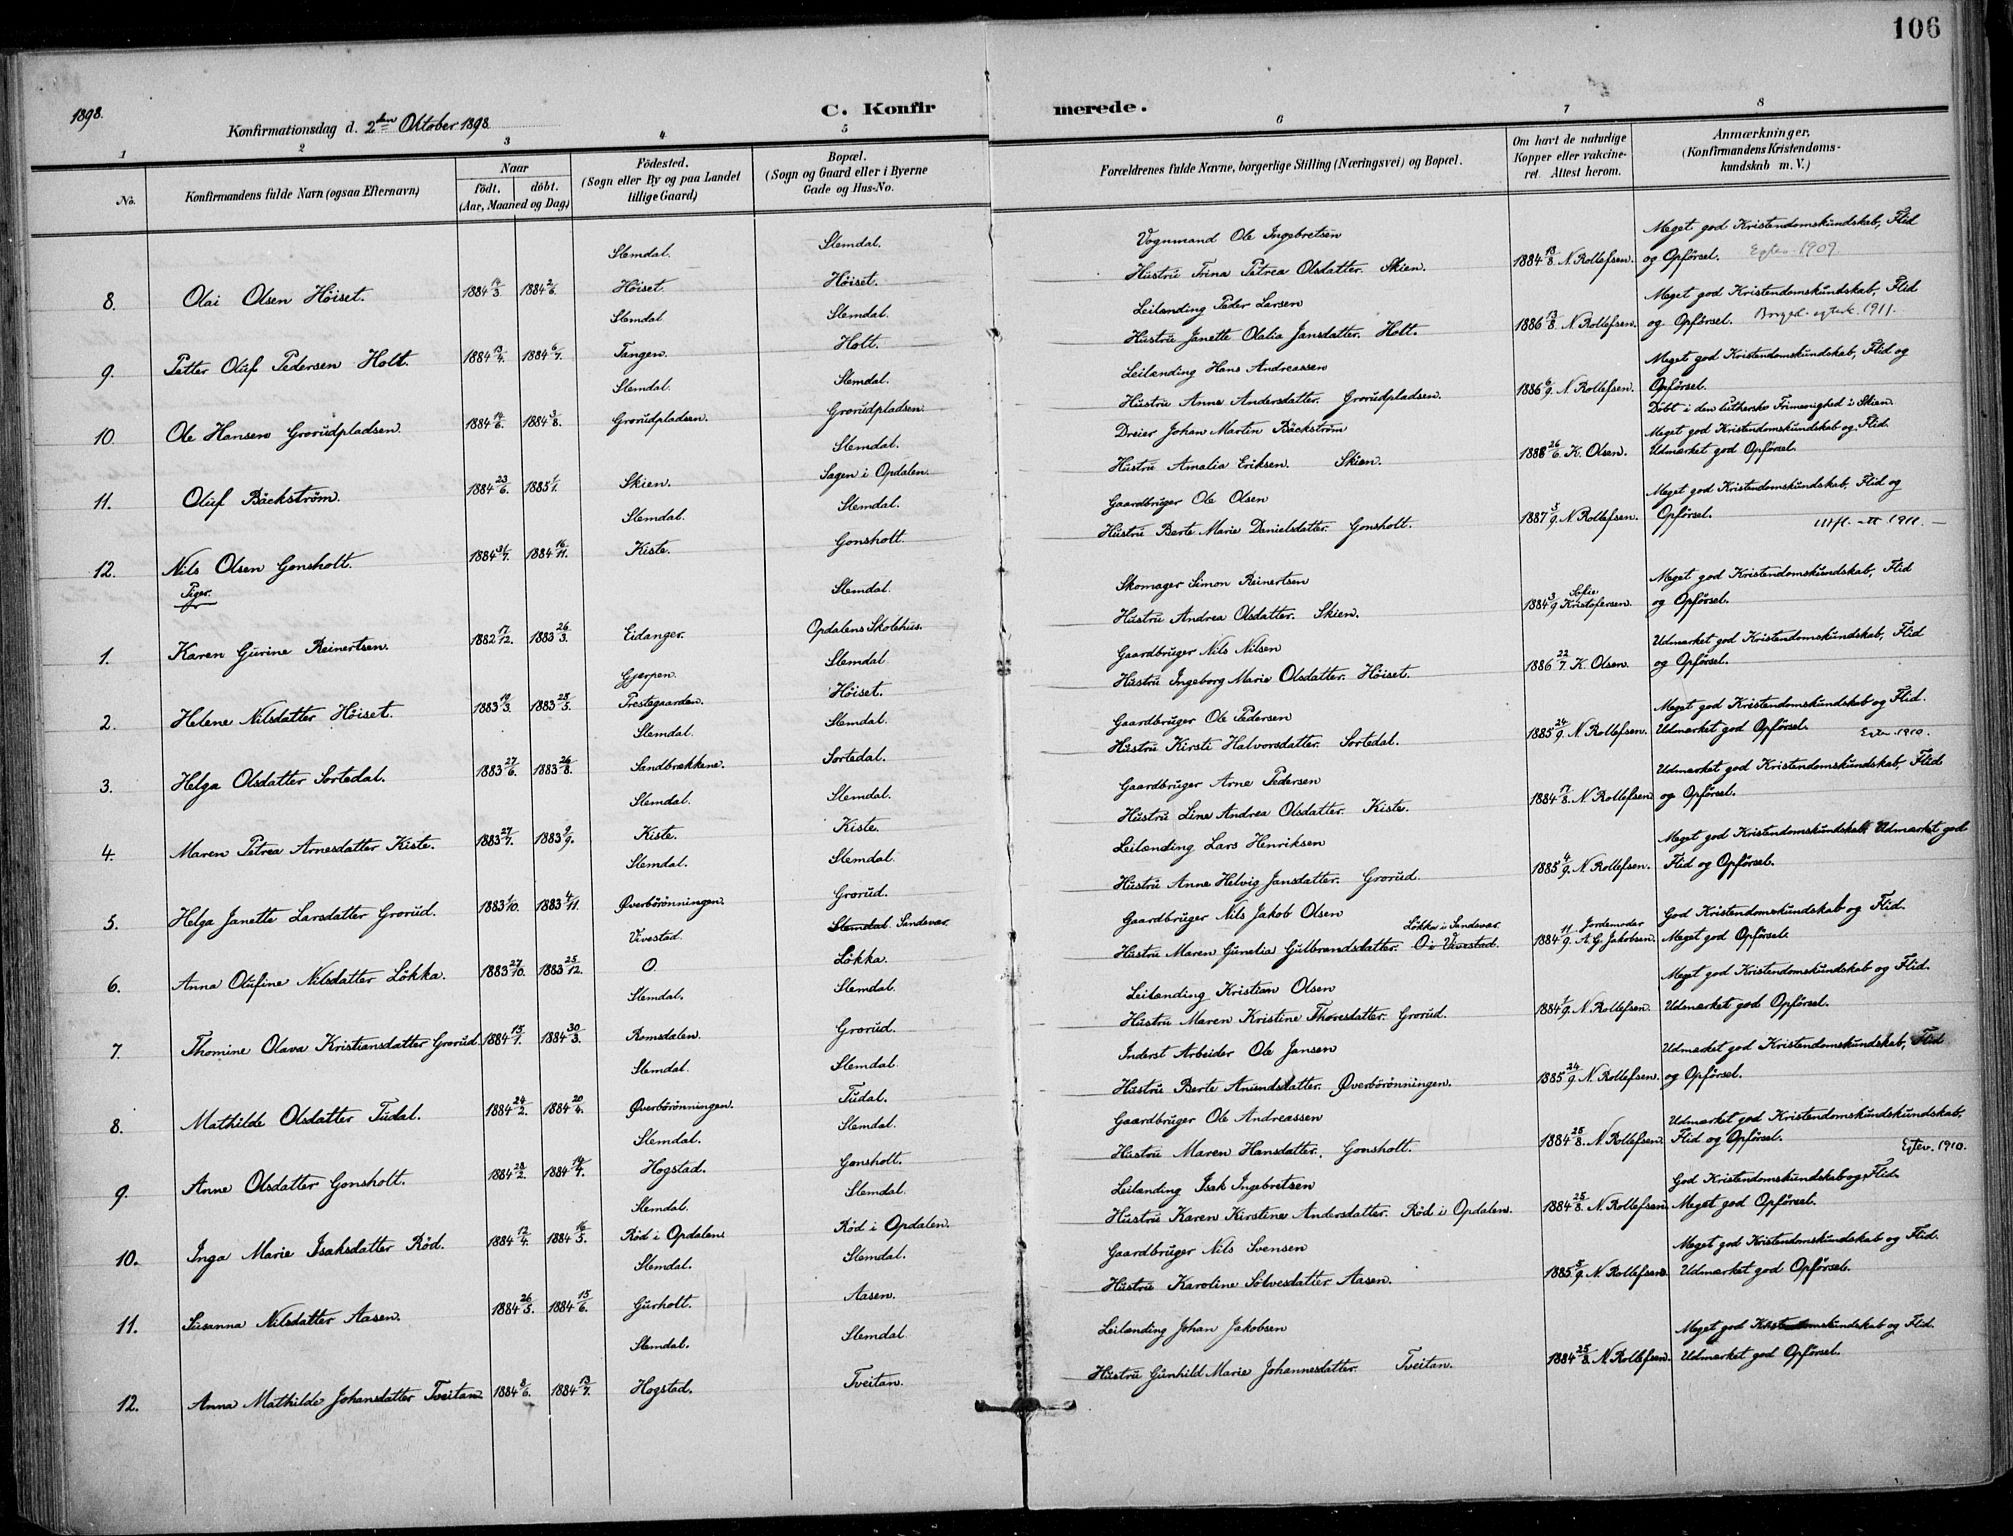 106
1898.
C. Konfirmerede.
Konfirmationsdag d. 2den Oktober 1898.
1 2 3 4 5 6 7 8
No. Konfirmandens fulde Navn (ogsaa Efternavn) Naar født. døbt. (Aar, Maaned og Dag) Fødested. (Sogn eller By og paa Landet tillige Gaard) Bopæl. (Sogn og Gaard eller i Byerne Gade og Hus-No. Forældrenes fulde Navne, borgerlige Stilling (Næringsvei) og Bopæl. Om havt de naturlige Kopper eller vakcineret. Attest herom. Anmærkninger, (Konfirmandens Kristendomskundskab m. V.)
Slemdal. Slemdal. Vognmand Ole Ingebretsen Meget god Kristendomskundskab, Flid
8. Olai Olsen Höiset. 1884 14/3. 1884 2/6. Höiset. Höiset. Hustru Trina Petrea Olsdatter. Skien. 1884 13/8. N. Rollefsen. og Opförsel. Egtev. 1909.
Slemdal Slemdal. Leilænding Peder Larsen Meget god Kristendomskundskab, Flid
9. Petter Oluf Pedersen Holt. 1884 13/4. 1884 6/7. Tangen. Holt. Hustru Janette Olalia Jansdatter. Holt. 1886 13/8. N. Rollefsen. og Opförsel. 1911.
Slemdal. Slemdal. Leilænding Hans Andreassen Meget god Kristendomskundskab, Flid og
10. Ole Hansen Grorudpladsen. 1884 14/6. 1884 3/8. Grorudpladsen. Grorudpladsen. Hustru Anne Andersdatter. Grorudpladsen. 1886 6/9. N. Rollefsen. Opförsel.
Döbt i den lutherske Frimenighed i Skien.
Slemdal. Dreier Johan Martin Bäckström Meget god Kristendomskundskab og Flid.
11. Oluf Bäckström. 1884 23/6. 1885 1/1. Skien. Sagen i Opdalen. Hustru Amalia Eriksen. Skien. 1888 26/6. K. Olsen. Udmærket god Opförsel.
Slemdal. Slemdal. Gaardbruger Ole Olsen Meget god Kristendomskundskab, Flid og
12. Nils Olsen Gonsholt. 1884 31/7. 1884 16/11. Kiste. Gonsholt. Hustru Berte Marie Danielsdatter. Gonsholt. 1887 5/9. N. Rollefsen. Opförsel. 1911.
Piger.
Slemdal. Skomager Simon Reinertsen Sofie Meget god Kristendomskundskab, Flid
1. Karen Gurine Reinertsen. 1882 17/12. 1883 26/3. Eidanger. Opdalens Skolehus. Hustru Andrea Olsdatter. Skien. 1884 3/9 Kristofersen. og Opförsel.
Gjerpen. Slemdal. Gaardbruger Nils Nilsen Udmærket god Kristendomskundskab, Flid
2. Helene Nilsdatter Höiset. 1883 19/3. 1883 28/5. Prestegaarden. Höiset. Hustru Ingeborg Marie Olsdatter. Höiset. 1886 22/7. K. Olsen. og Opförsel.
Slemdal. Slemdal. Gaardbruger Ole Pedersen Meget god Kristendomskundskab og Flid.
3. Helga Olsdatter Sortedal. 1883 27/6. 1883 26/8. Sandbrækkene. Sortedal. Hustru Kirsti Halvorsdatter. Sortedal. 1885 24/9. N. Rollefsen. Udmærket god Opförsel. Egtev. 1910.
Slemdal. Slemdal. Gaardbruger Arne Pedersen Udmærket god Kristendomskundskab, Flid
4. Maren Petrea Arnesdatter Kiste. 1883 27/7. 1883 9/9. Kiste. Kiste. Hustru Line Andrea Olsdatter. Kiste. 1884 17/8. N. Rollefsen. og Opförsel.
Slemdal. Slemdal. Leilænding Lars Henriksen Meget god Kristendomskundskab, Udmærket god
5. Helga Janette Larsdatter Grorud. 1883 1/10. 1883 4/11. Øverbörönningen. Grorud. Hustru Anne Helvig Jansdatter. Grorud. 1885 4/9. N. Rollefsen. Flid og Opförsel.
Vivestad. Slemdal. Sandevær. Gaardbruger Nils Jakob Olsen Lökka i Sandevær. Jordemoder God Kristendomskundskab og Flid.
6. Anna Olufine Nilsdatter Lökka. 1883 27/10. 1883 25/12. O. Lökka. Hustru Maren Gunelia Gulbrandsdatter. O i Vivestad. 1884 11/9. A. G. Jakobsen. Meget god Opförsel.
Slemdal. Slemdal. Leilænding Kristian Olsen Meget god Kristendomskundskab og Flid.
7. Thomine Olava Kristiansdatter Grorud. 1884 15/1. 1884 30/3. Romsdalen. Grorud. Hustru Maren Kristine Thoresdatter. Grorud. 1884 1/9. N. Rollefsen. Udmærket god Opförsel.
Slemdal. Slemdal. Inderst Arbeider Ole Jansen Udmærket god Kristendomskundskab, Flid
8. Mathilde Olsdatter Tudal. 1884 24/2. 1884 20/4. Øverbörönningen. Tudal. Hustru Berte Anundsdatter. Øverbörönningen. 1885 24/9. N. Rollefsen. og Opförsel.
Slemdal. Slemdal. Gaardbruger Ole Andreassen Udmærket god Kristendomskundskundskab,
9. Anne Olsdatter Gonsholt. 1884 28/2. 1884 14/4. Hogstad. Gonsholt. Hustru Maren Hansdatter. Gonsholt. 1884 25/8. N. Rollefsen. Flid og Opförsel. Egtev. 1910.
Slemdal. Slemdal. Leilænding Isak Ingebretsen God Kristendomskundskab og Flid.
10. Inga Marie Isaksdatter Röd. 1884 12/4. 1884 16/5. Röd i Opdalen. Röd i Opdalen. Hustru Karen Kirstine Andersdatter. Röd i Opdalen. 1884 25/8. N. Rollefsen. Meget god Opförsel.
Slemdal. Slemdal. Gaardbruger Nils Svensen Meget god Kristendomskundskab og Flid.
11. Susanna Nilsdatter Aasen. 1884 26/5. 1884 15/6. Gurholt. Aasen. Hustru Karoline Sölvesdatter Aasen. 1885 5/9. N. Rollefsen. Udmærket god Opförsel.
Slemdal. Slemdal. Leilænding Johan Jakobsen Meget god Kristendomskundskab og Flid.
12. Anna Mathilde Johansdatter Tveitan. 1884 8/6. 1884 13/7. Hogstad. Tveitan. Hustru Gunhild Marie Johannesdatter. Tveitan. 1884 25/8. N. Rollefsen. Udmærket god Opförsel.